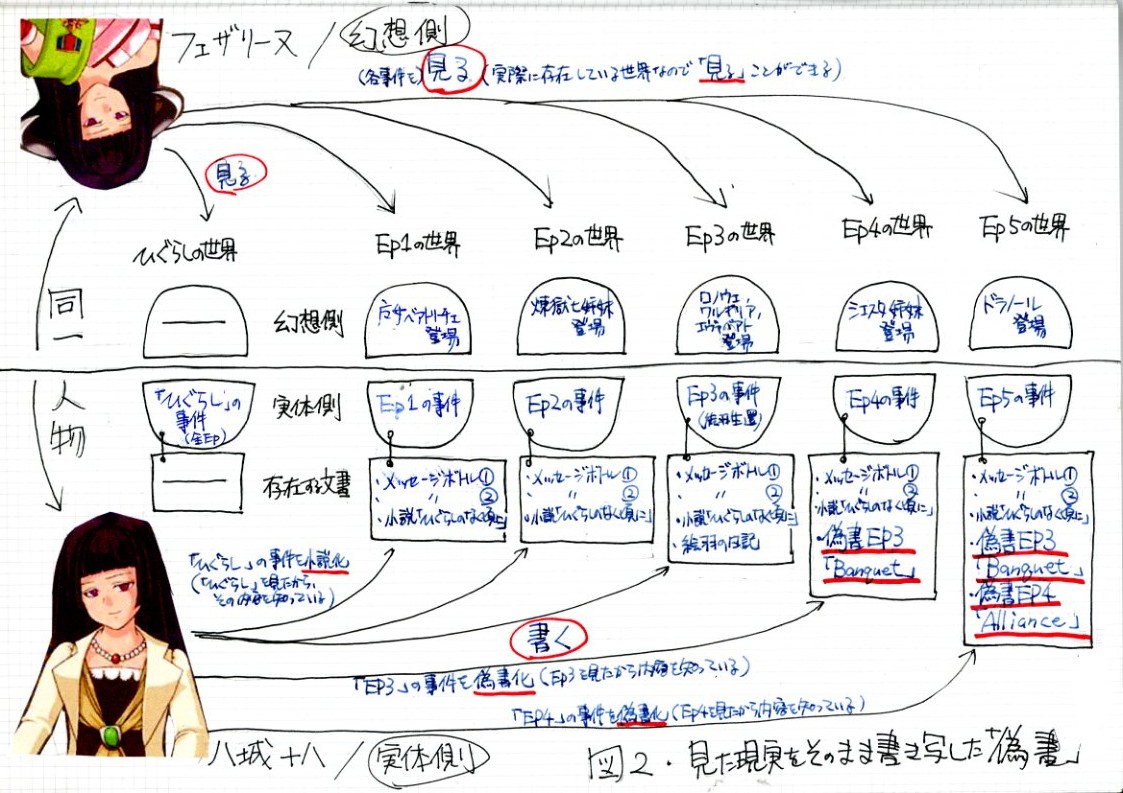 フェザリーヌ / 幻想側
(各事件を)見る(実際に存在している世界なので「見る」ことができる)
見る
ひぐらしの世界
Ep1の世界
Ep2の世界
Ep3の世界
Ep4の世界
Ep5の世界
同一
人物
幻想側
一
戸サベアトリーチェ
登場
煉獄七姉妹
登場
ロノウェ
ワルギリア,
エヴァベアト
登場
シエスタ姉妹
登場
ドラノール
登場
実体側
「ひぐらし」の
事件
(全Ep)
Ep1の事件
Ep2の事件
Ep3の事件
(絵羽生還)
Ep4の事件
Ep5の事件
存在する文書
一
・メッセージボトル①
・ 〃 ②
・小説「ひぐらしのなく頃に」
・メッセージボトル①
・ 〃 ②
・小説「ひぐらしのなく頃に」
・メッセージボトル①
・ 〃 ②
・小説「ひぐらしのなく頃に」
・絵羽の日記
・メッセージボトル①
・ 〃 ②
・小説「ひぐらしのなく頃に」
・偽書EP3
「Banquet」
・メッセージボトル①
・ 〃 ②
・小説「ひぐらしのなく頃に」
・偽書EP3
「Banquet」
・偽書EP4
「Alliance」
「ひぐらし」の事件を小説化
(「ひぐらし」を見たから,
その内容を知っている)
書く
「EP3」の事件を偽書化(Ep3を見たから内容を知っている)
「EP4」の事件を偽書化(Ep4を見たから内容を知っている)
八城十八 / 実体側
図2・見た現実をそのまま書き写した「偽書」